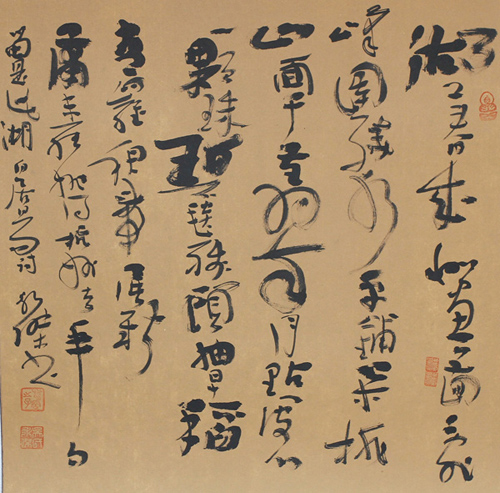 湖上春来似画图乱
峰围绕水平铺松排
山面千重翠月点波心
一颗珠碧毯线头抽早稻
青罗裙带展新
蒲未能抛得杭州去一半勾
留是此湖 白居易诗 书